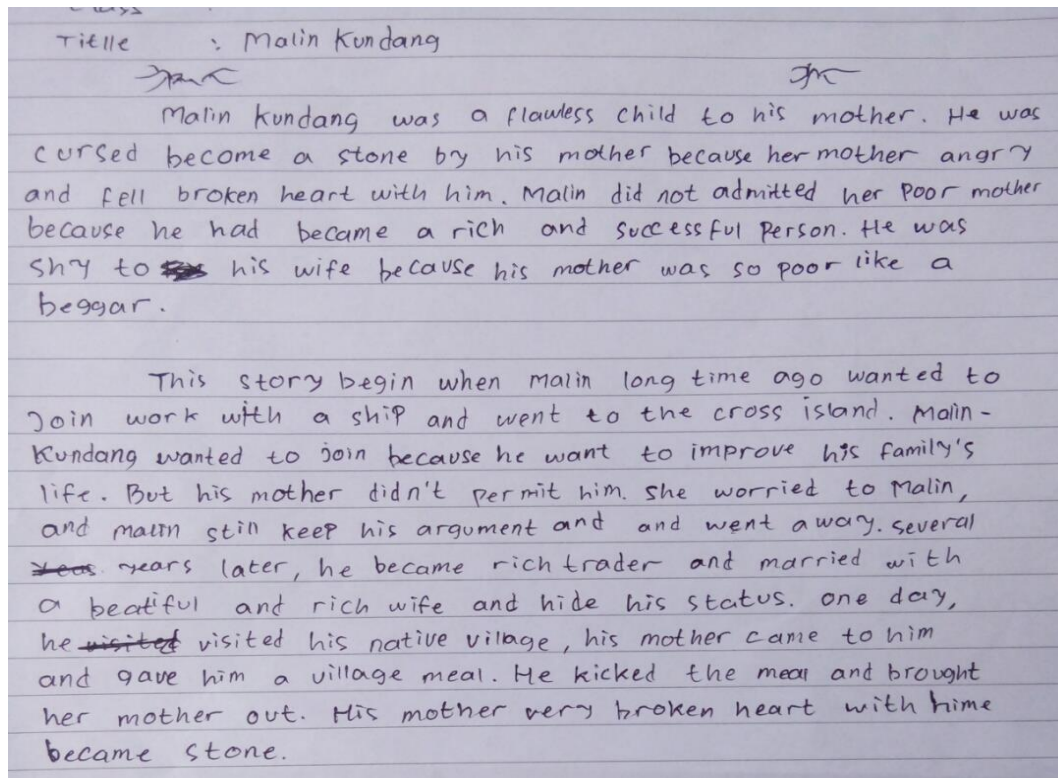 Titlle : Malin Kundang
Malin Kundang was a flawless child to his mother. He was
cursed become a stone by his mother because her mother angry
and fell broken heart with him. Malin did not admitted her poor mother
because he had became a rich and successful person. He was
shy to his wife because his mother was so poor like a
beggar.
This story begin when Malin long time ago wanted to
Join work with a ship and went to the cross island. Malin-
Kundang wanted to join because he want to improve his family's
life. But his mother didn't permit him. She worried to Malin,
and malin still keep his argument and and went away. several
years later, he became rich trader and married with
a beatiful and rich wife and hide his status. one day,
he visited visited his native vilage, his mother came to him
and gave him a village meal. He kicked the meal and brought
her mother out. His mother very broken heart with hime
became stone.